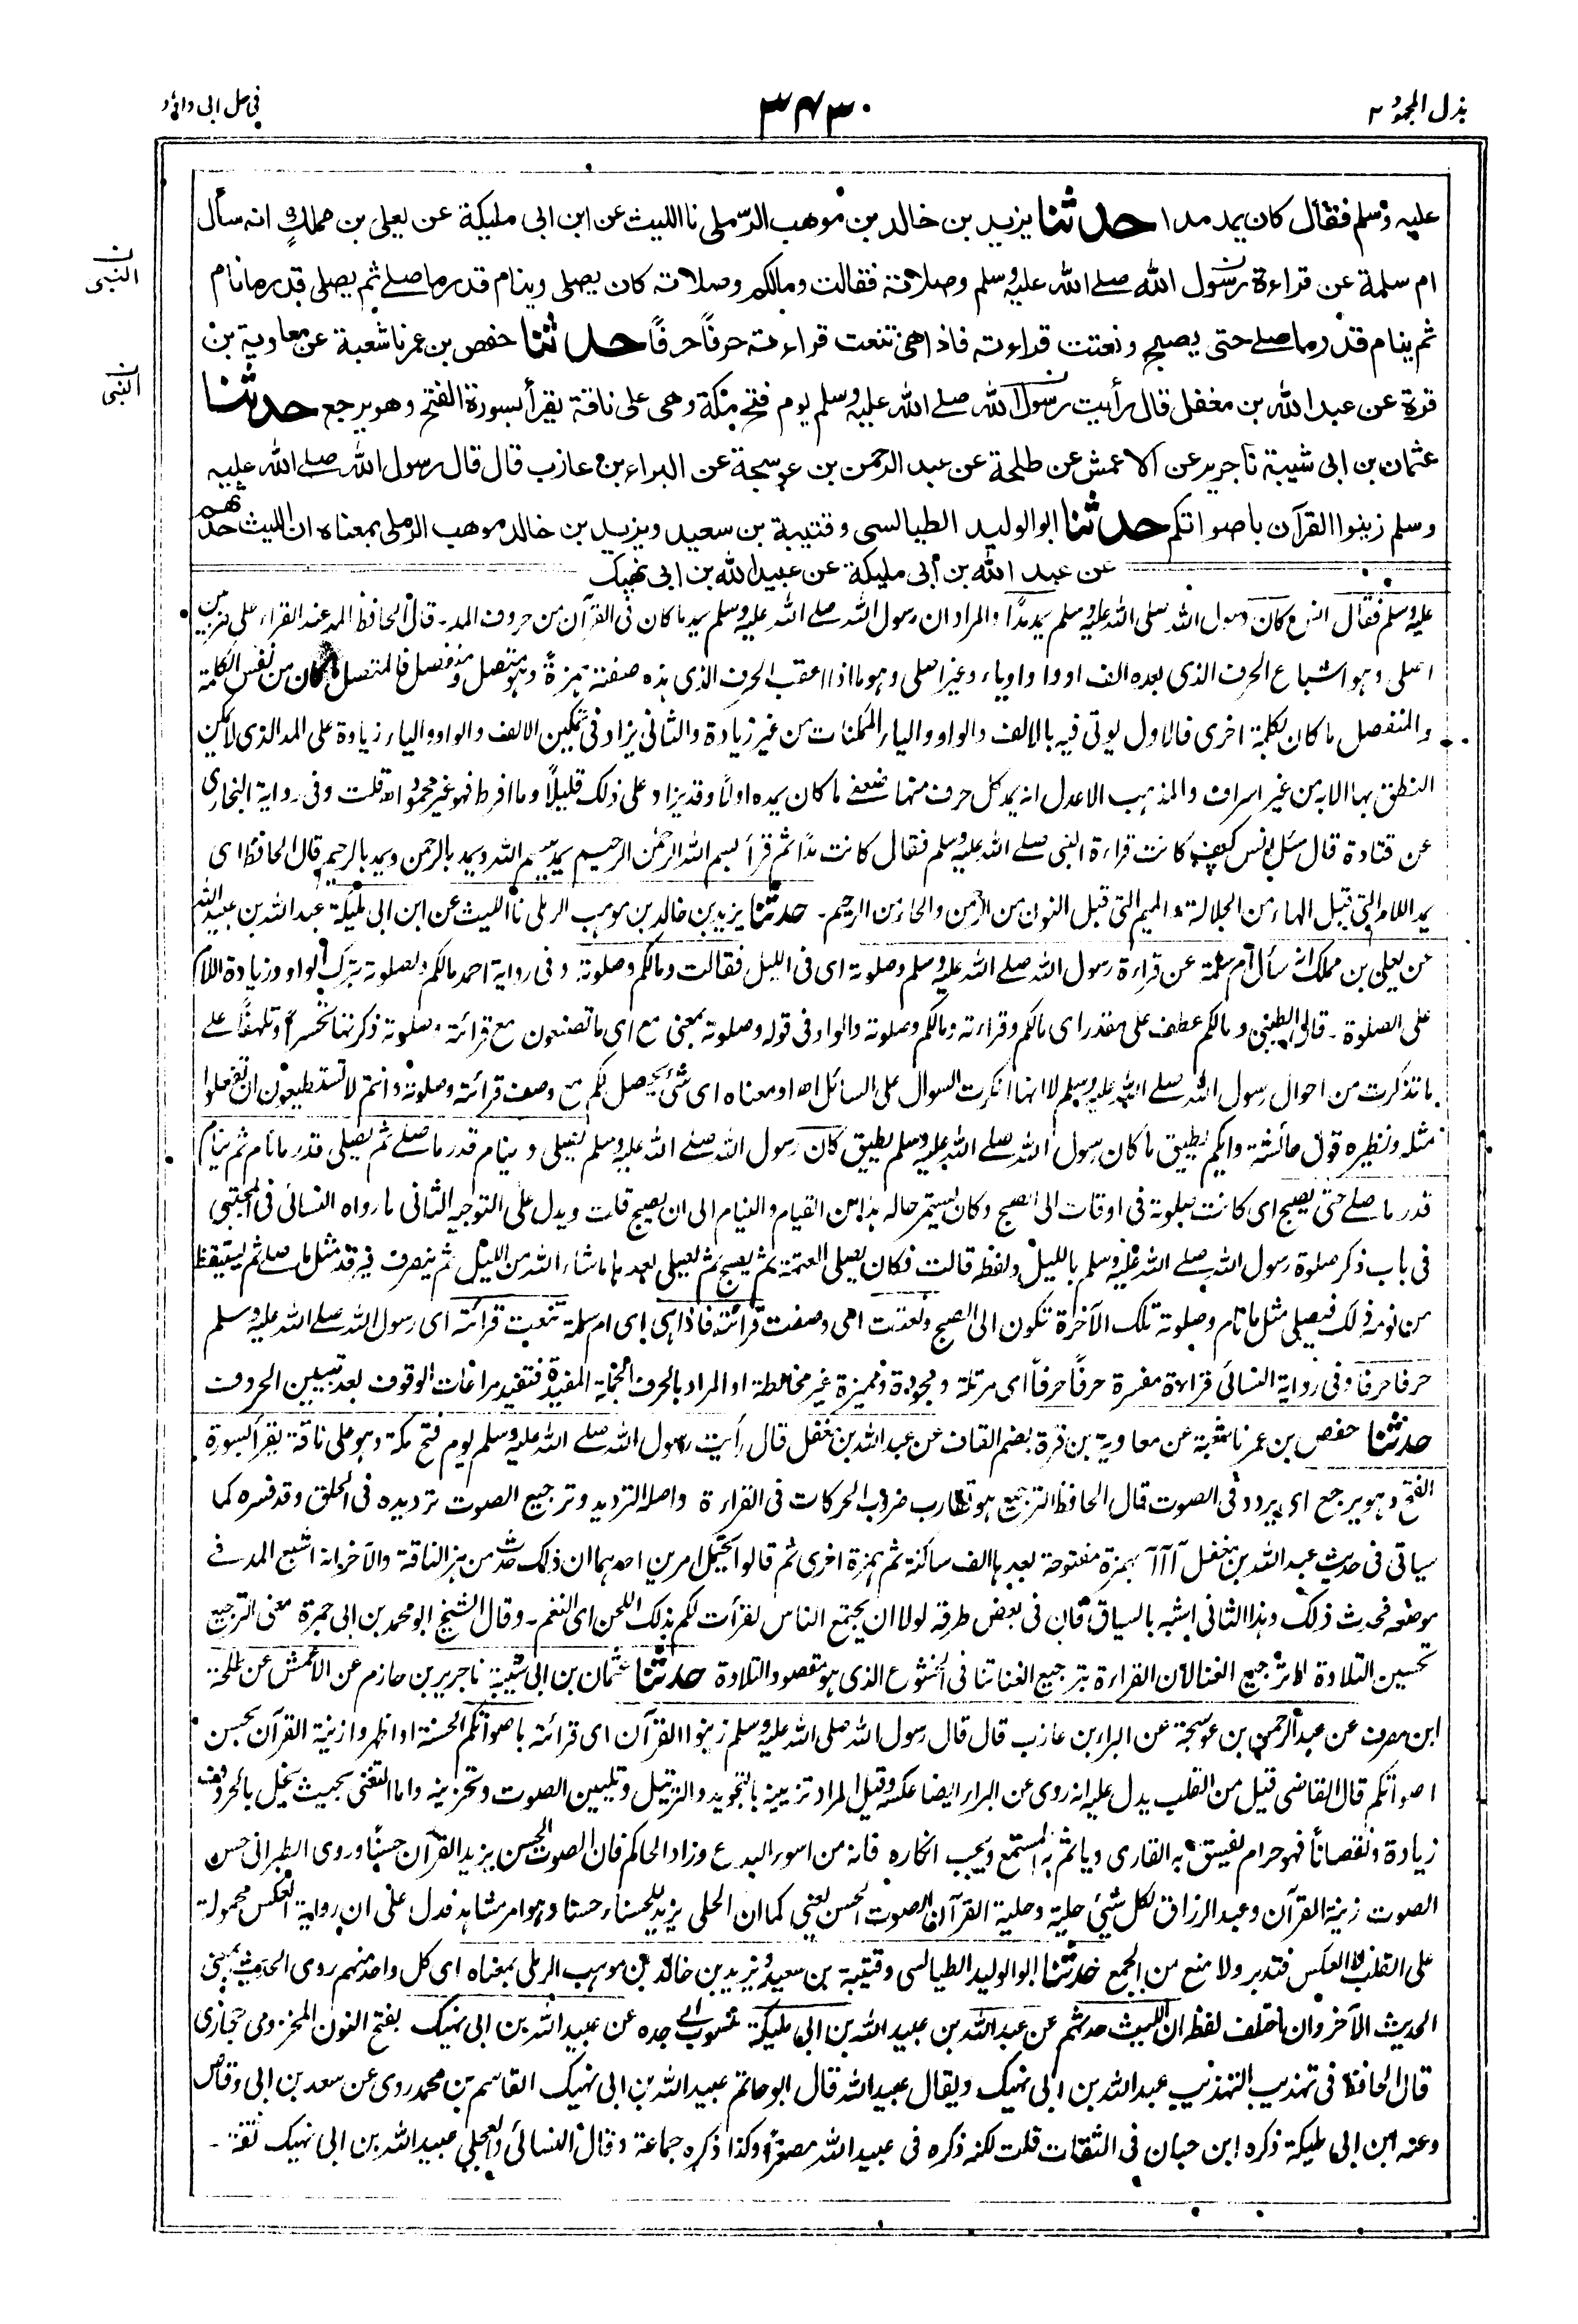 بذل المجهود ٢
٣٤٣٠
في حل ابى داؤد
عليه وسلم فقال كان يمد مدا حدثنا يزيد بن خالد بن موهب الرملى نا الليث عن ابن ابى مليكة عن يعلى بن مملك انه سأل
ام سلمة عن قراءة رسول الله صلے الله عليه وسلم وصلاته فقالت ومالكم وصلاته كان يصلى وينام قدر ما صلے ثم يصلى قدر ما نام
ثم ينام قدر ما صلے حتى يصبح ونعتت قراءته فاذا هى تنعت قراءته حرفاً حرفاً حدثنا حفص بن عمر نا شعبة عن معاوية بن
قرة عن عبد الله بن مغفل قال رأيت رسول الله صلے الله عليه وسلم يوم فتح مكة وهى على ناقة يقرأ بسورة الفتح وهو يرجع حدثنا
عثمان بن ابى شيبة نا جرير عن الاعمش عن طلحة عن عبد الرحمن بن عوسجة عن البراء بن عازب قال قال رسول الله صلے الله عليه
وسلم زينوا القرآن باصواتكم حدثنا ابو الوليد الطيالسى وقتيبة بن سعيد ويزيد بن خالد موهب الرملى بمعناه ان الليث حدثهم
عن عبد الله بن أبى مليكة عن عبيد الله بن ابى نهيك
النبى
النبى
عليه وسلم فقال انس كان رسول الله صلى الله عليه وسلم يمد مدًا والمراد ان رسول الله صلے الله عليه وسلم يمد ما كان فى القرآن من حروف المد۔ قال الحافظ المد عند القراء على ضربين
اصلى وهو اشباع الحرف الذى بعده الف او واو او ياء وغير اصلى وهو ما اذا اعقب الحرف الذى هذه صفته همزة وهو متصل ومنفصل فالمتصل ما كان من نفس الكلمة
والمنفصل ما كان بكلمة اخرى فالاول يوتى فيه بالالف والواو والياء الممكنات من غير زيادة والثانى يزاد فى تمكين الالف والواو والياء زيادة على المد الذى لا يمكن
النطق بها الا به من غير اسراف والمذهب الاعدل انه يمد كل حرف منها ضعفى ما كان يمده اولاً وقد يزاد على ذلك قليلاً وما افرط فهو غير محمود اھ قلت وفى رواية البخارى
عن قتادة قال سئل انس كيف كانت قراءة النبى صلے الله عليه وسلم فقال كانت مدًا ثم قرأ بسم الله الرحمٰن الرحيم يمد ببسم الله ويمد بالرحمن ويمد بالرحيم قال الحافظ اى
يمد اللام التى قبل الهاء من الجلالة والميم التى قبل النون من الرحمن والحاء من الرحيم۔ حدثنا يزيد بن خالد بن موهب الرملى نا الليث عن ابن ابى مليكة عبد الله بن عبيد الله
عن يعلى بن مملك انه سأل ام سلمة عن قراءة رسول الله صلے الله عليه وسلم وصلوته اى فى الليل فقالت ومالكم وصلوته وفى رواية احمد مالكم ولصلوته بترك الواو وزيادة اللام
على الصلوة۔ قال الطيبى ومالكم عطف على مقدر اى مالكم وقراءته ومالكم وصلوته والواو فى قوله وصلوته بمعنى مع اى ما تصنعون مع قرائته وصلوته ذكرتها تحسرًا وتلهفًا على
ما تذكرت من احوال رسول الله صلے الله عليه وسلم لا انها انكرت السوال على السائل اھ او معناه اى شئ يحصل لكم مع وصف قرائته وصلوته وانتم لا تستطيعون ان تفعلوا
مثله ونظيره قول عائشة وايكم يطيق ما كان رسول الله صلے الله عليه وسلم يطيق كان رسول الله صلے الله عليه وسلم يصلى وينام قدر ما صلے ثم يصلى قدر ما نام ثم ينام
قدر ما صلے حتى يصبح اى كانت صلوته فى اوقات الى الصبح وكان يستمر حاله هذا من القيام والنيام الى ان يصبح قلت ويدل على التوجيه الثانى ما رواه النسائى فى المجتبى
فى باب ذكر صلوة رسول الله صلے الله عليه وسلم بالليل ولفظه قالت فكان يصلى العتمة ثم يسبح ثم يصلى بعدها ما شاء الله من الليل ثم ينصرف فيرقد مثل ما صلے ثم يستيقظ
من نومه ذلك فيصلى مثل ما نام وصلوته تلك الآخرة تكون الى الصبح ونعتت اى وصفت قرائته فاذا هى اى ام سلمة تنعت قرائته اى رسول الله صلے الله عليه وسلم
حرفا حرفا وفى رواية النسائى قراءة مفسرة حرفاً حرفاً اى مرتلة ومجودة ومميزة غير مخالطة او المراد بالحرف الجملة المفيدة فتفيد مراعات الوقوف بعد تبيين الحروف
حدثنا حفص بن عمر نا شعبة عن معاوية بن قرة بضم القاف عن عبد الله بن مغفل قال رأيت رسول الله صلے الله عليه وسلم يوم فتح مكة وهو على ناقة يقرأ بسورة
الفتح وهو يرجع اى يردد فى الصوت قال الحافظ الترجيع هو تقارب ضروب الحركات فى القراءة واصله الترديد وترجيع الصوت ترديده فى الحلق وقد فسره كما
سياتى فى حديث عبد الله بن مغفل آ آ آ بهمزة مفتوحة بعدها الف ساكنة ثم همزة اخرى ثم قالوا يحتمل امرين احدهما ان ذلك حدث من هز الناقة والآخر انه اشبع المد فى
موضعه فحدث ذلك وهذا الثانى اشبه بالسياق فان فى بعض طرقه لولا ان يجتمع الناس لقرأت لكم بذلك اللحن اى النغم۔ وقال الشيخ ابو محمد بن ابى جمرة معنى الترجيع
تحسين التلاوة لا ترجيع الغناء لان القراءة بترجيع الغنا تنا فى الخشوع الذى هو مقصود التلاوة حدثنا عثمان بن ابى شيبة نا جرير بن حازم عن الاعمش عن طلحة
ابن مصرف عن عبد الرحمن بن عوسجة عن البراء بن عازب قال قال رسول الله صلى الله عليه وسلم زينوا القرآن اى قرائته باصواتكم الحسنة او اظهروا زينة القرآن بحسن
اصواتكم قال القاضى قيل من القلب يدل عليه انه روى عن البراء ايضا عكسه وقيل المراد تزيينه بالتجويد والترتيل وتليين الصوت وتحزينه واما التغنى بحيث يخل بالحروف
زيادة ونقصاناً فهو حرام يفسق به القارى وياثم به المستمع ويجب انكاره فانه من اسوء البدع وزاد الحاكم فان الصوت الحسن يزيد القرآن حسناً وروى الطبرانى حسن
الصوت زينة القرآن وعبد الرزاق لكل شئ حلية وحلية القرآن الصوت الحسن يعنى كما ان الحلى يزيد للحسناء حسنا وهو امر مشاهد فدل على ان رواية العكس محمولة
على القلب لا العكس فتدبر ولا منع من الجمع حدثنا ابو الوليد الطيالسى وقتيبة بن سعيد ويزيد بن خالد بن موهب الرملى بمعناه اى كل واحد منهم روى الحديث بمعنى
الحديث الآخر وان اختلف لفظه ان الليث حدثهم عن عبد الله بن عبيد الله بن ابى مليكة منسوب الى جده عن عبيد الله بن ابى نهيك بفتح النون المخزومى حجازى
قال الحافظ فى تهذيب التهذيب عبد الله بن ابى نهيك ويقال عبيد الله قال ابو حاتم عبيد الله بن ابى نهيك القاسم بن محمد روى عن سعد بن ابى وقاص
وعنه ابن ابى مليكة ذكره ابن حبان فى الثقات قلت لكنه ذكره فى عبيد الله مصغراً وكذا ذكره جماعة وقال النسائى والعجلى عبيد الله بن ابى نهيك ثقة۔